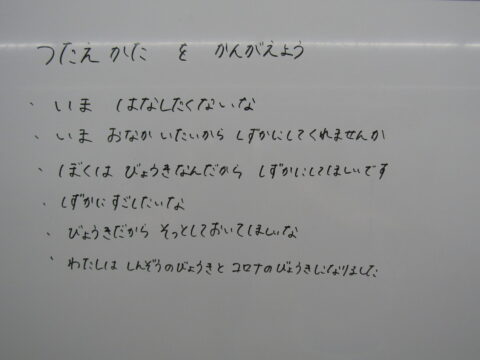 つたえかた を かんがえよう
・ いま はなしたくないな
・ いま おなかいたいから しずかにしてくれませんか
・ ぼくは びょうきなんだから しずかにしてほしいです
・ しずかに すごしたいな
・ びょうきだから そっとしておいてほしいな
・ わたしは しんぞうのびょうきと コロナのびょうきになりました